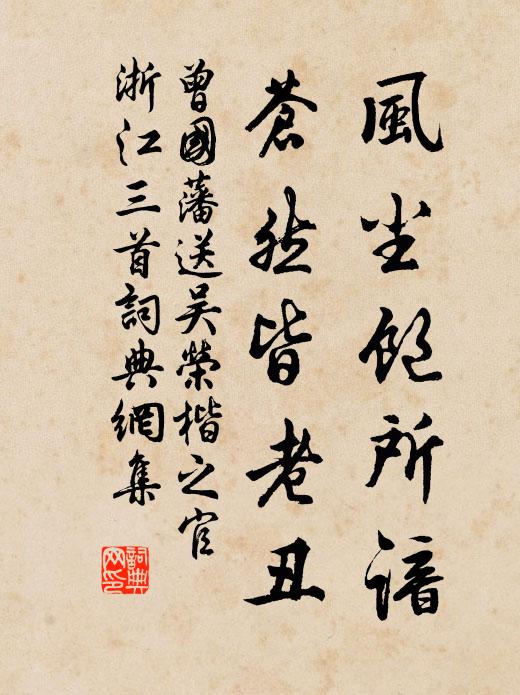 風尘飽所諳
蒼然皆老丑
曾國藩送吴榮楷之官
浙江三首詞典網集
詞典网印